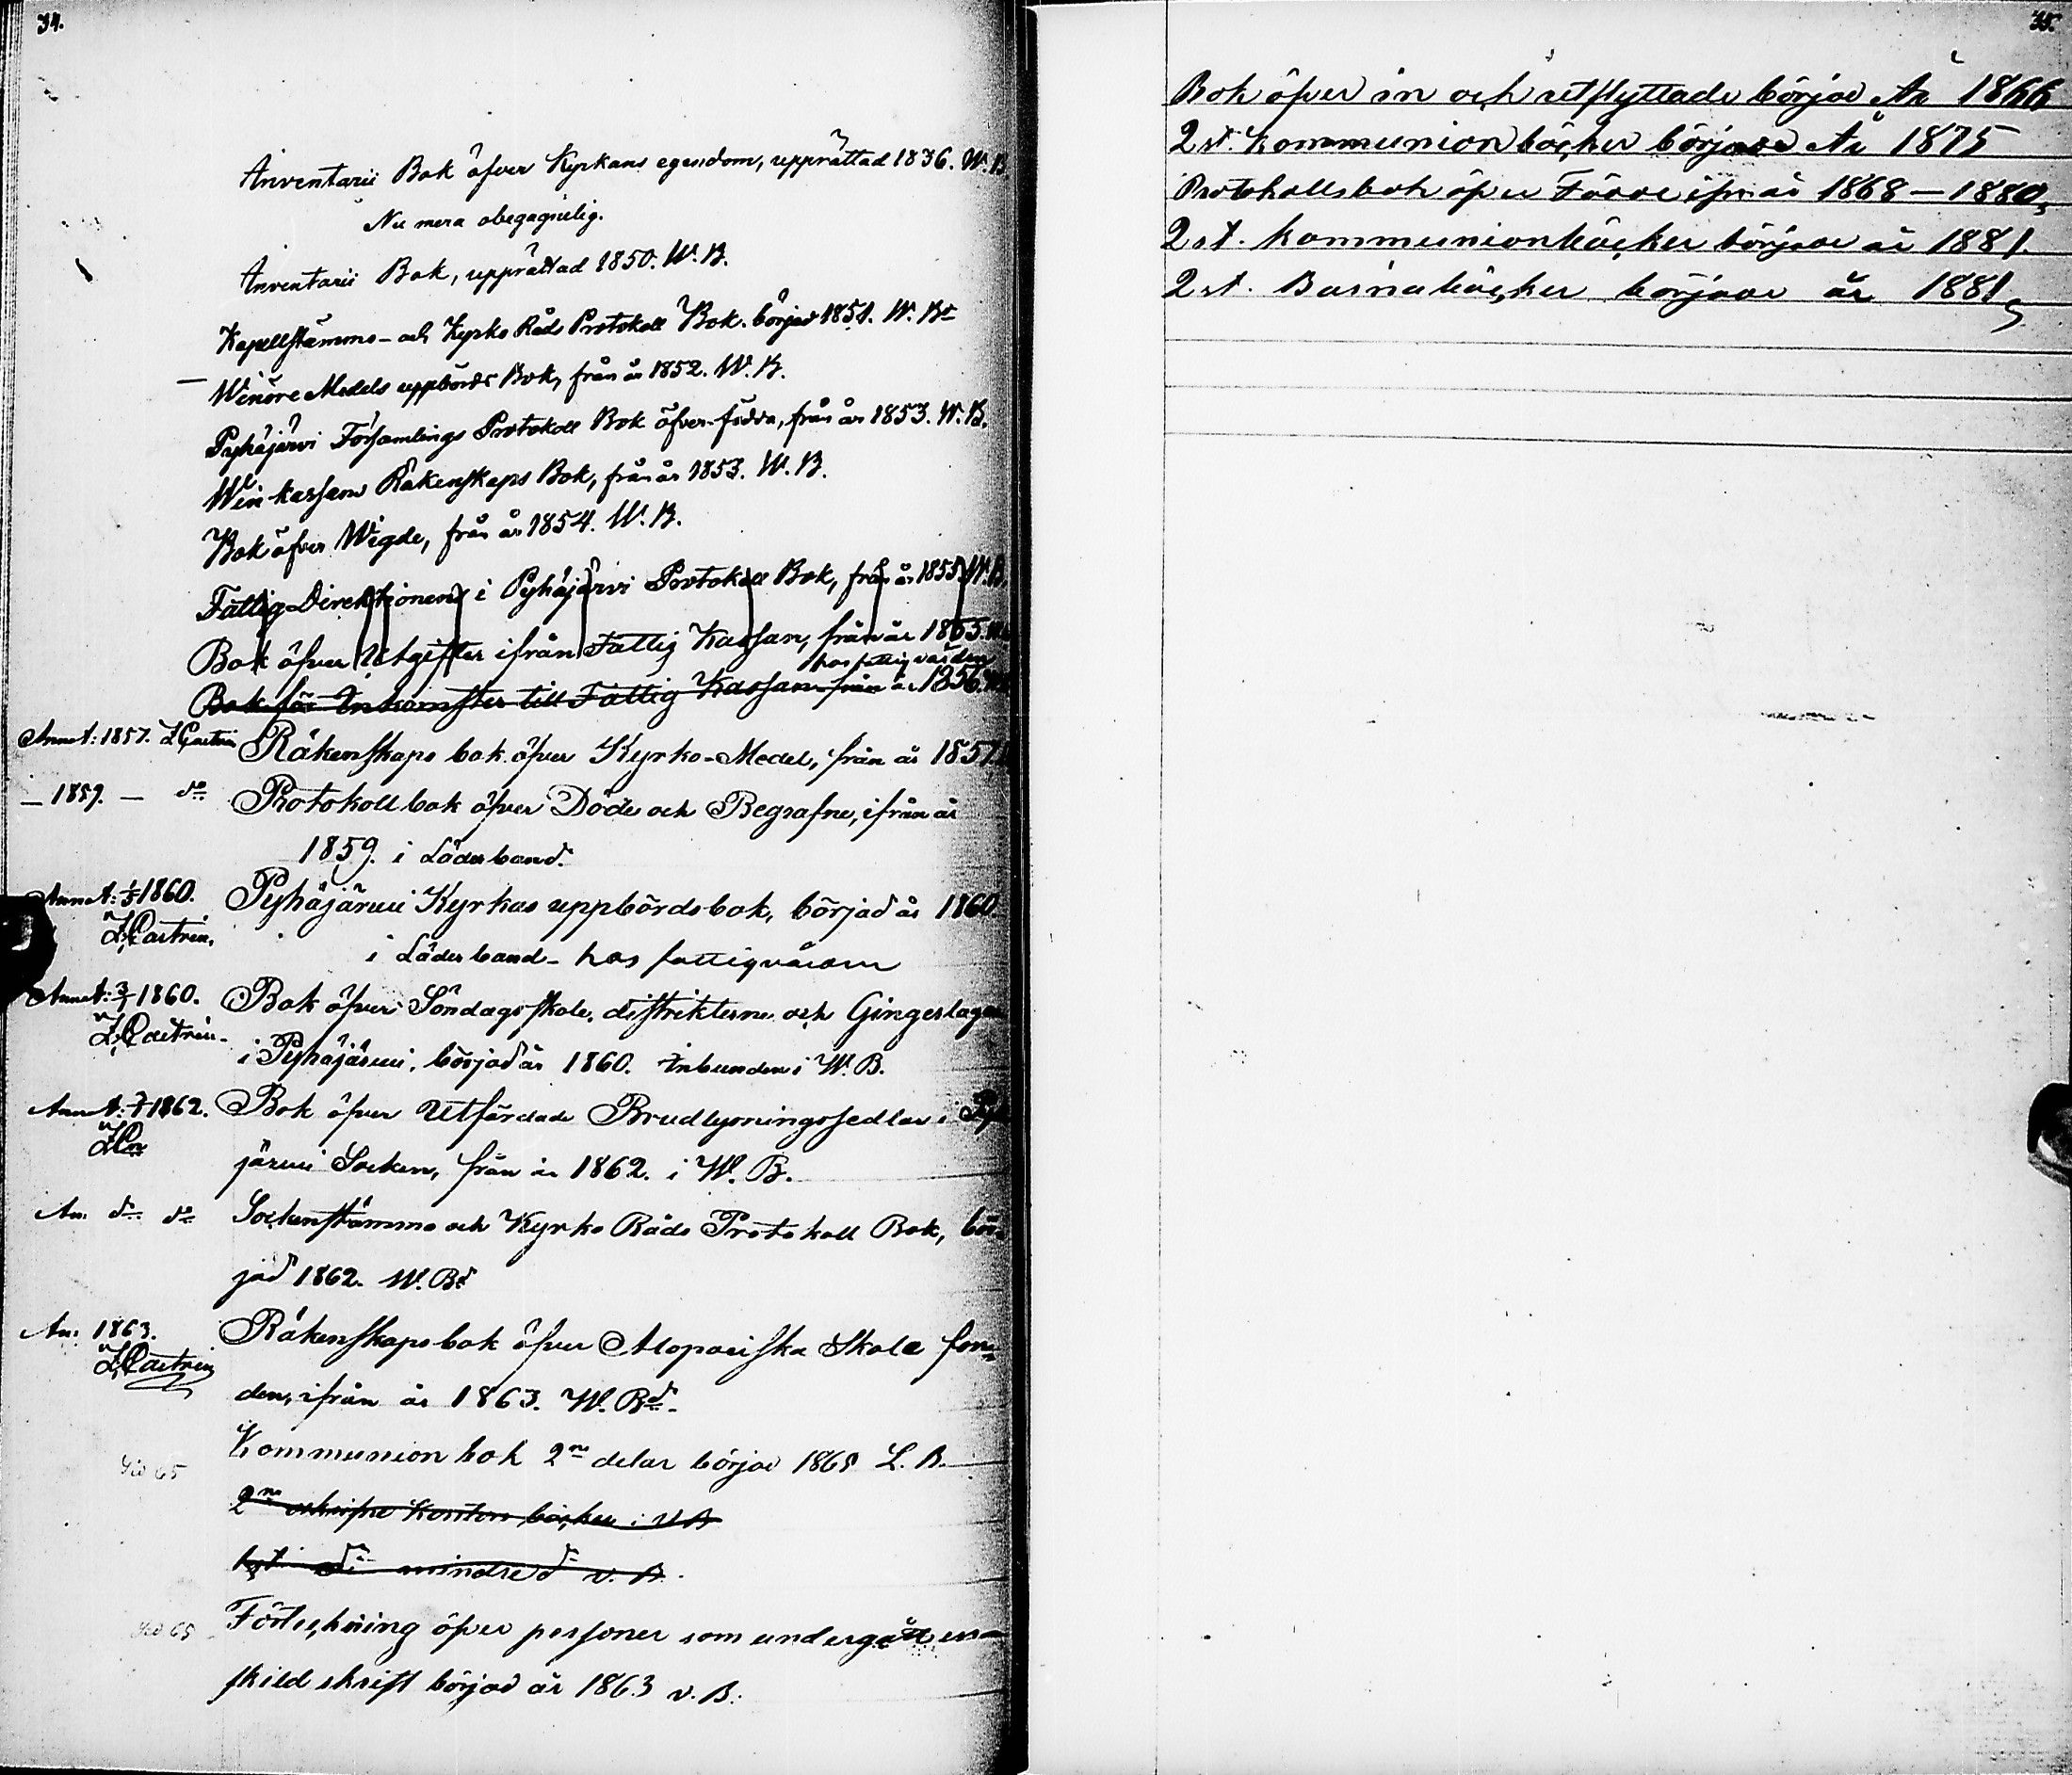 34.
Inventarii Bok öfver Kyrkans egendom, upprättad 1836. W. B
Nu mera obegagnelig.
Inventarii Bok, upprättad 1850. W. B.
Kapellstämmo- och Kyrko Råds Protokoll Bok. börjad 1851. W. Bd
Medels uppbörds Bok, från år 1852. W. B.
Pyhäjärvi Församlings Protokoll Bok öfver födda, från år 1853. W. B.
Win-kassans Räkenskaps Bok, från år 1853. W. B.
Bok öfver Wigde, från år 1854. W. B.
Fattig Direktionens i Pyhäjärvi Protokoll Bok, från år 1855 W. B.
Bok öfver Utgifter ifrån Fattig Kassan, från år 1855.
hos fattigvården
Bok för Inkomster till Fattig Kassan från år 1856.
Annot: 1857. Z Castrén Räkenskaps bok öfver Kyrko-Medel, från år 1857.
— 1859. — do Protokoll bok öfver Döde och Begrafne, ifrån år
1859. i Läderband.
Annot: 1/5 1860. Pyhäjärvi Kyrkas uppbördsbok, börjad år 1860
Z, Castrén. i Läderband - hos fattigvården
Annot: 3/7 1860. Bok öfver Söndagsskole, distrikterne och Gingerlagen
Z, Castrén. i Pyhäjärvi, börjad år 1860. Inbunden i W. B.
Annot: 1862. Bok öfver Utfärdade Brudlysningssedlar i Pyh
Z Cn järvi Socken, från år 1862. i W. B.
An. do do Sockenstämmo och Kyrko Råds Protokoll Bok, bör-
jad 1862. W. Bd
An: 1863. Räkenskaps bok öfver Alopaeiska Skole fon-
Z, Castrén den, ifrån år 1863. W. Bd.
Kommunion bok 2ne delar börjad 1865 L. B.
2ne böcker i v B
1 st. do mindre do v. B.
Förteckning öfver personer som undergått en-
skild skrift börjad år 1863 v. B.
35.
Bok öfver in och utflyttade börjad År 1866
2 st. Kommunionböcker började År 1875
Protokollsbok öfver Födde ifrån år 1868 — 1880,
2 st. kommunionböcker började år 1881.
2 st. Barnaböcker började år 1881,